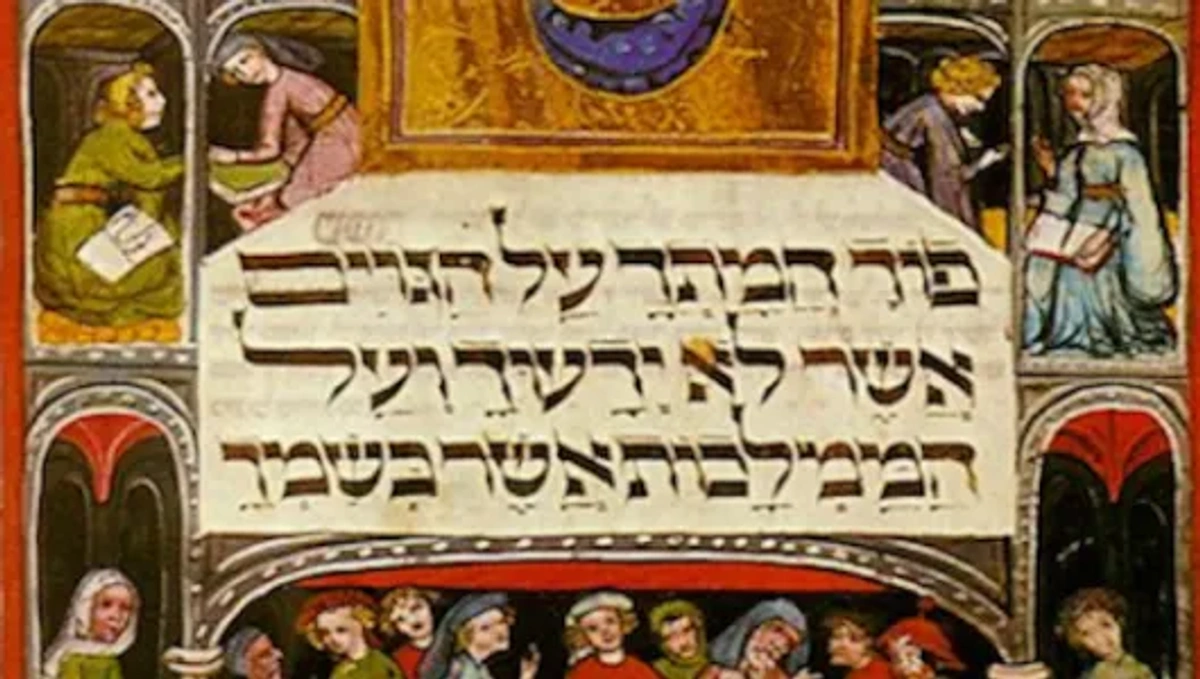 פוך חמתך על הגוים
אשר לא ידעוך ועל
הממלכות אשר בשמך